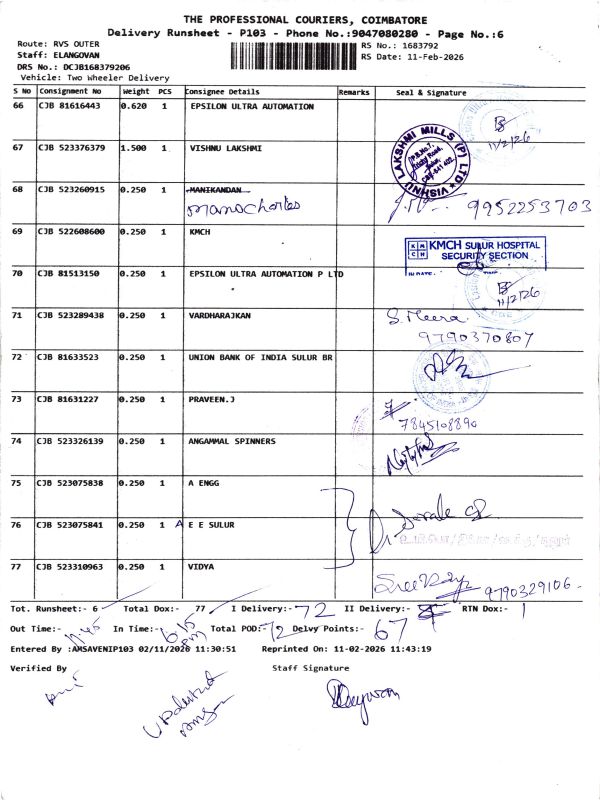 THE PROFESSIONAL COURIERS, COIMBATORE
Delivery Runsheet - P103 - Phone No.:9047080280 - Page No.:6
Route: RVS OUTER
RS No.: 1683792
Staff: ELANGOVAN
RS Date: 11-Feb-2026
DRS No.: DCJB168379206
Vehicle: Two Wheeler Delivery
S No Consignment No Weight PCS Consignee Details Remarks Seal & Signature
66 CJB 81616443 0.620 1 EPSILON ULTRA AUTOMATION
11/2/26
67 CJB 523376379 1.500 1 VISHNU LAKSHMI
VISHNU LAKSHMI MILLS (P) LTD
68 CJB 523260915 0.250 1 MANIKANDAN
9952253703
69 CJB 522608600 0.250 1 KMCH
KMCH SULUR HOSPITAL
SECURITY SECTION
70 CJB 81513150 0.250 1 EPSILON ULTRA AUTOMATION P LTD
11/2/26
71 CJB 523289438 0.250 1 VARDHARAJKAN
S. Meera
9790370807
72 CJB 81633523 0.250 1 UNION BANK OF INDIA SULUR BR
73 CJB 81631227 0.250 1 PRAVEEN.J
7845108890
74 CJB 523326139 0.250 1 ANGAMMAL SPINNERS
75 CJB 523075838 0.250 1 A ENGG
76 CJB 523075841 0.250 1 A E E SULUR
77 CJB 523310963 0.250 1 VIDYA
9790329106
Tot. Runsheet:- 6 Total Dox:- 77 I Delivery:- 72 II Delivery:- RTN Dox:-
Out Time:- 11.45 In Time:- 6.15 pm Total POD:- 72 Delvy Points:- 67
Entered By :AMSAVENIP103 02/11/2026 11:30:51 Reprinted On: 11-02-2026 11:43:19
Verified By Staff Signature